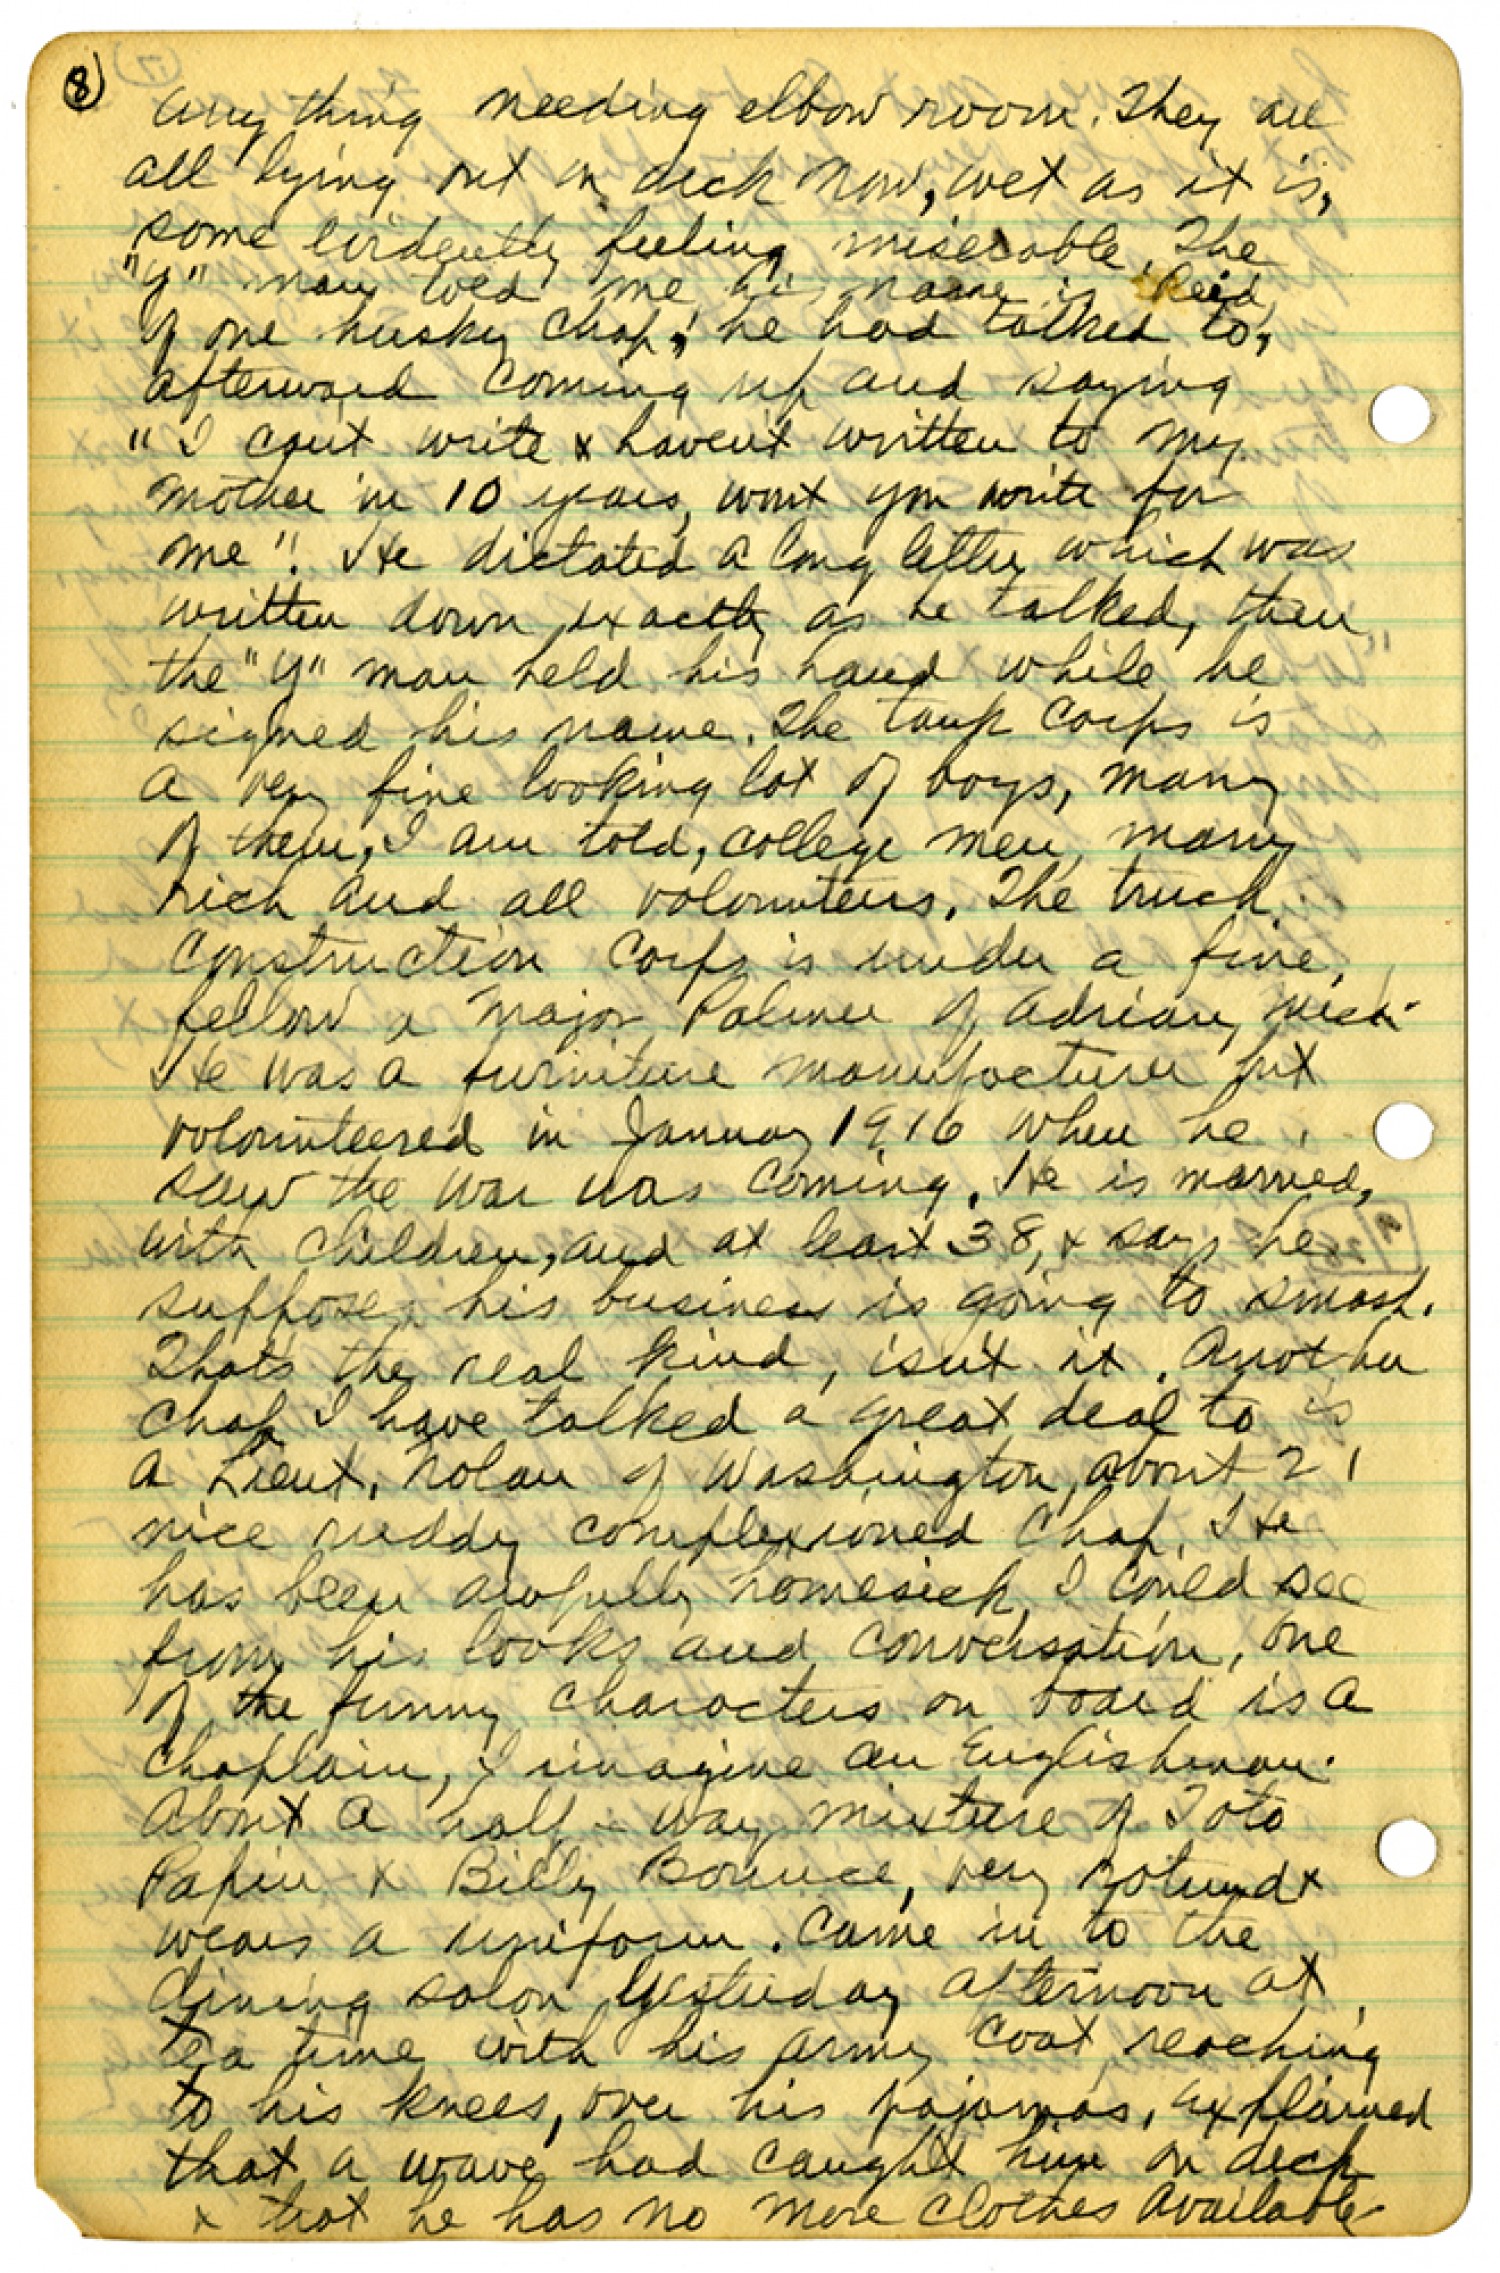 8
any thing needing elbow room. They are
all lying out on deck now, wet as it is,
some evidently feeling miserable. The
"Y" man told me his name is Reid
of one husky chap, he had talked to,
afterward coming up and saying
"I can't write & haven't written to my
mother in 10 years, won't you write for
me". He dictated a long letter which was
written down exactly as he talked, then
the "Y" man held his hand while he
signed his name. The tank corps is
a very fine looking lot of boys, many
of them, I am told, college men, many
rich and all volunteers. The truck
construction corps is under a fine,
fellow a Major Palmer of Adrian, Mich.
He was a furniture manufacturer but
volunteered in January 1916 when he
saw the war was coming. He is married,
with children, and at least 38, & says he
supposes his business is going to smash.
That's the real kind, isn't it. Another
chap I have talked a great deal to is
a Lieut. Nolan of Washington, about 21
nice ruddy complexioned chap. He
has been awfully homesick I could see
from his looks and conversation, one
of the funny characters on board is a
Chaplain, I imagine an Englishman.
About a half-way mixture of Toto
Papin & Billy Bounce, very rotund &
wears a uniform. Came in to the
dining salon yesterday afternoon at
tea time with his army coat reaching
to his knees, over his pajamas, explained
that a wave had caught him on deck
& that he has no more clothes available